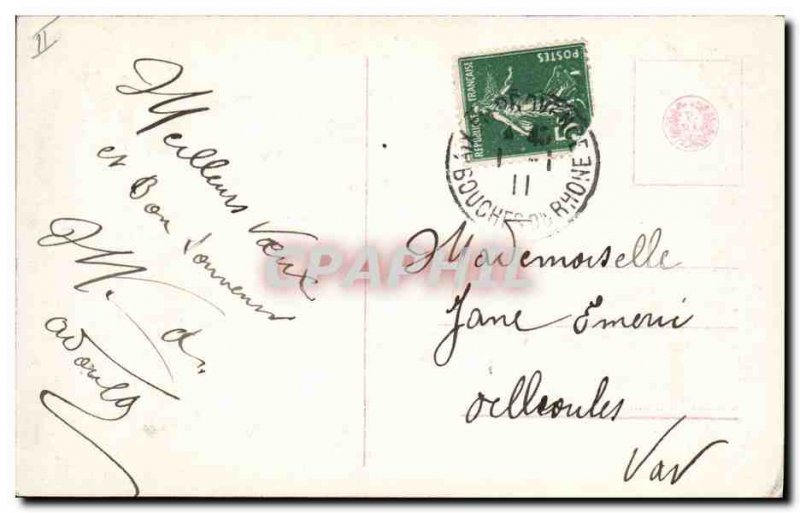 II
Meilleurs Vœux
et Bon Souvenir
M. d
POSTES
RÉPUBLIQUE FRANÇAISE
BOUCHES DU RHONE
1 - 1
11
Mademoiselle
Jane Emeric
ollioules
Var
CPAPHIL